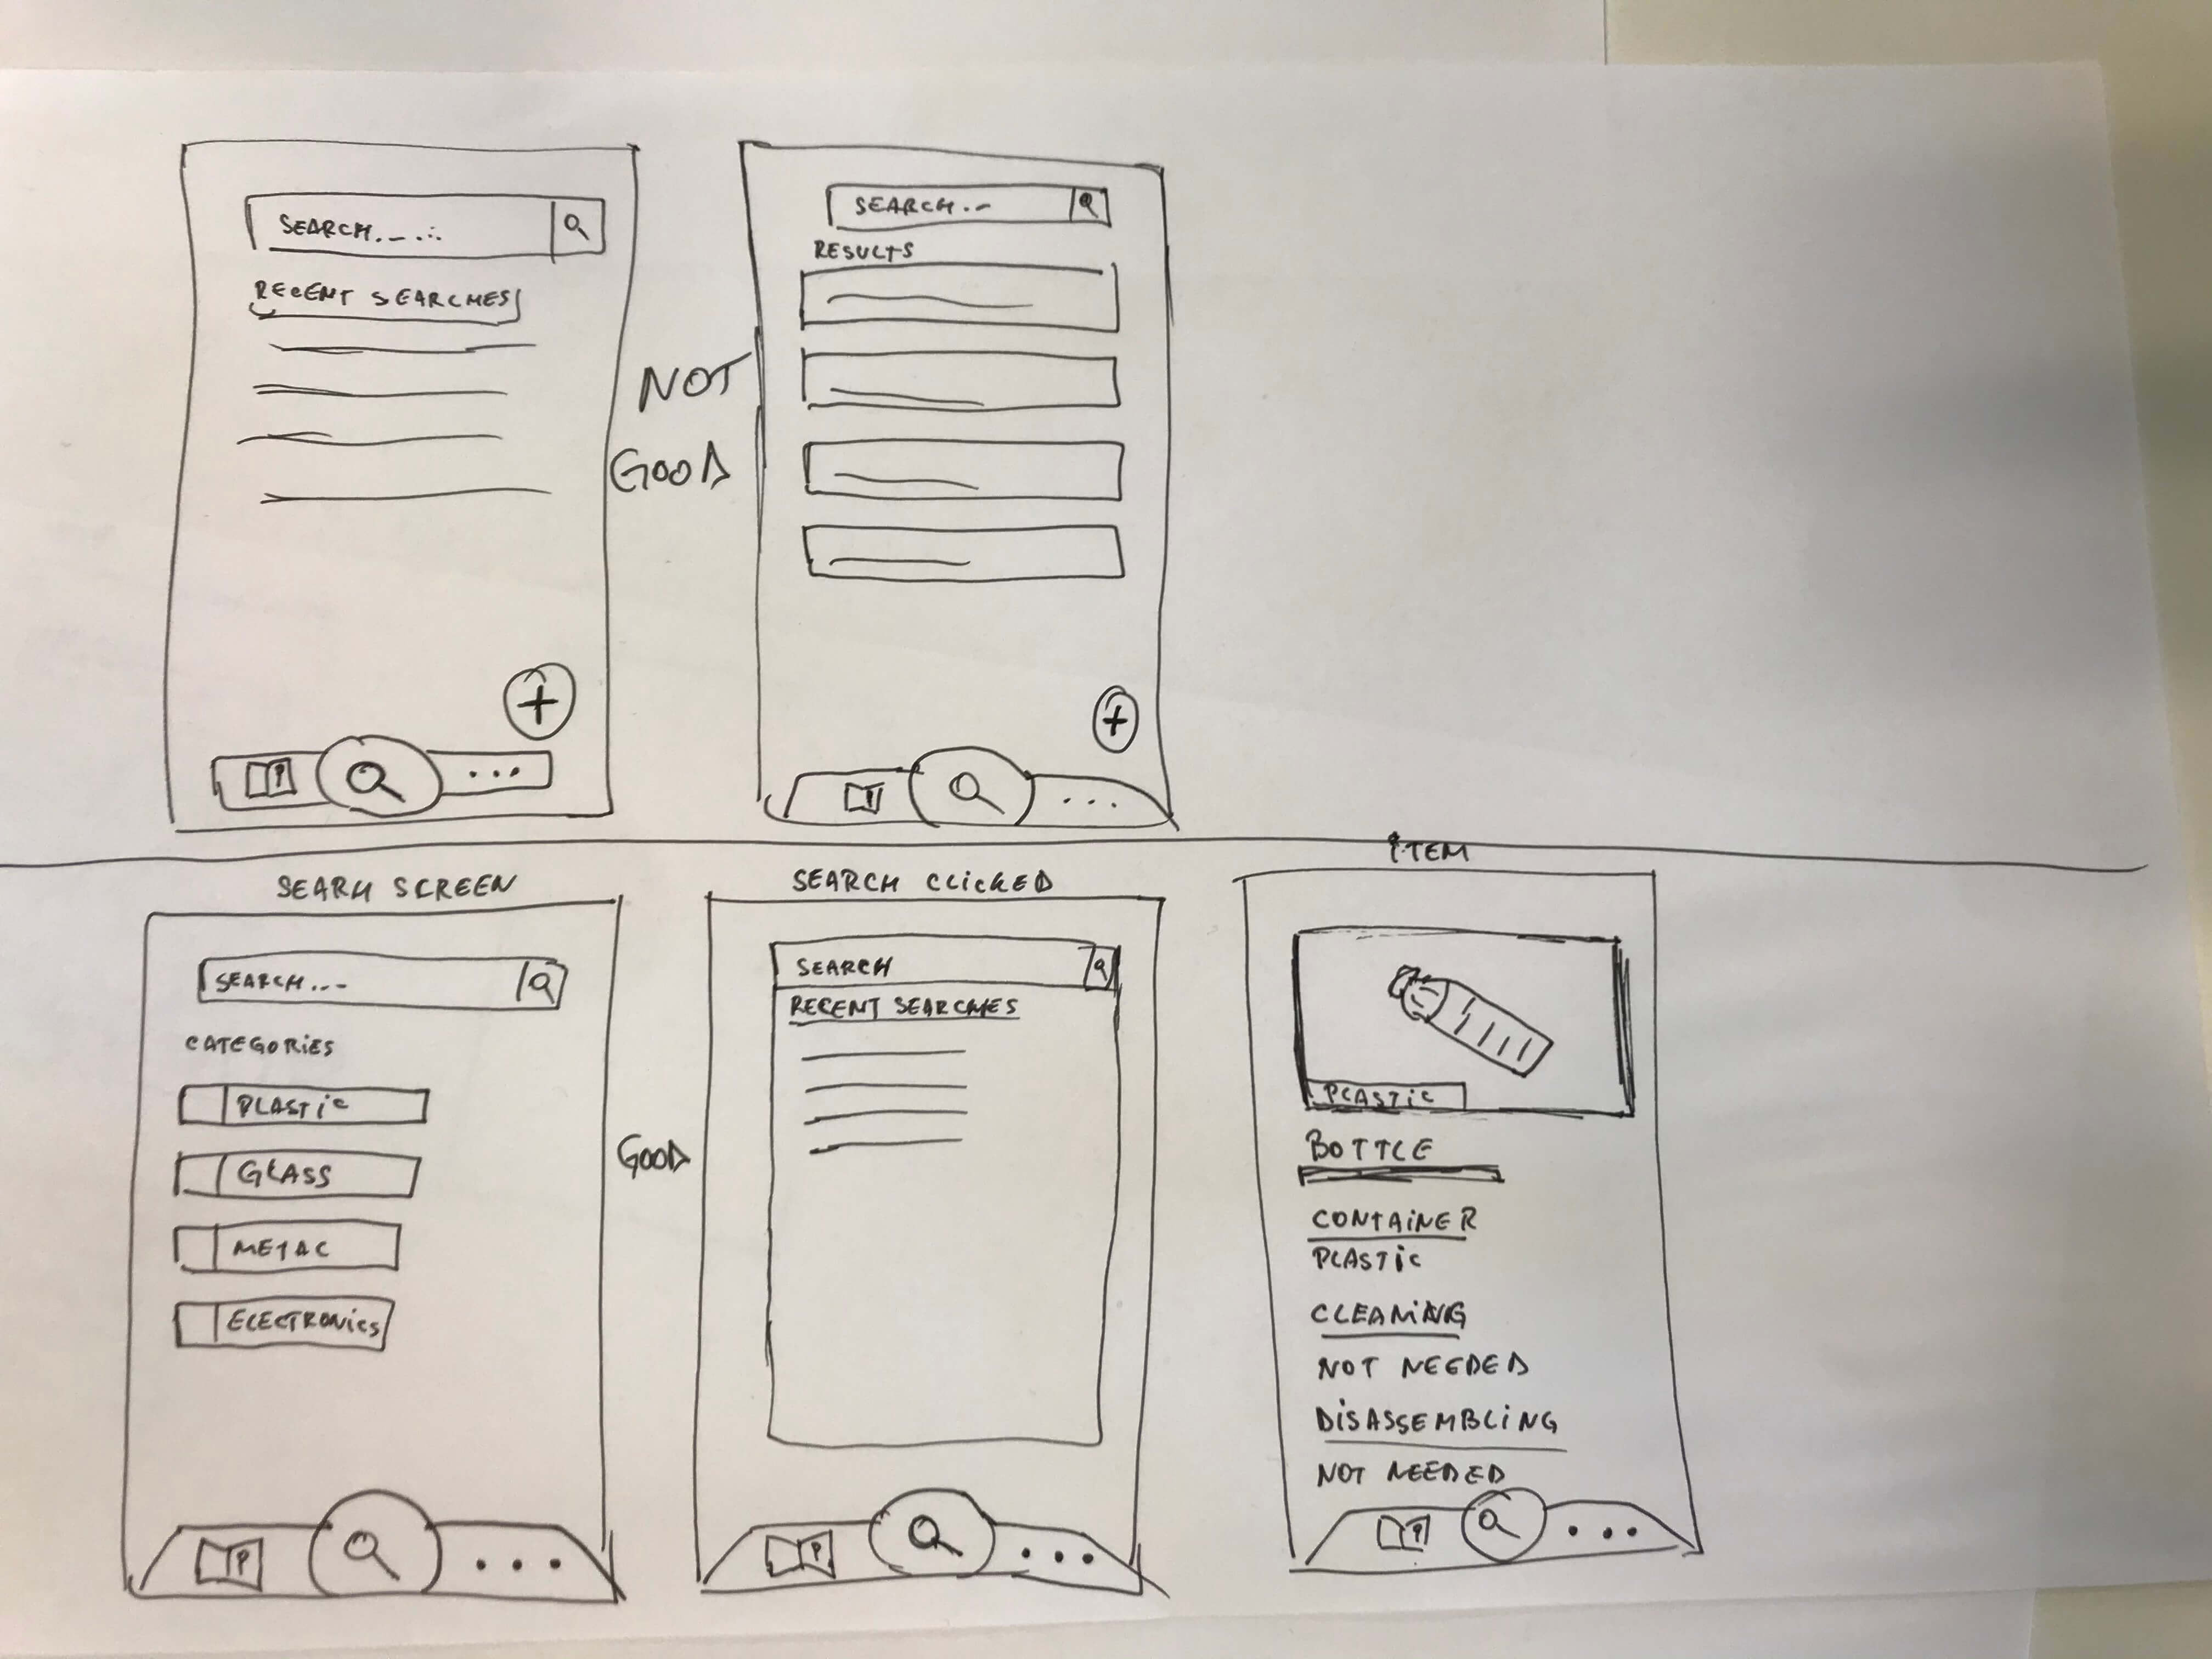 SEARCH.......
RECENT SEARCHES
NOT
GOOD
SEARCH...
RESULTS
SEARH SCREEN
SEARCH...
CATEGORIES
PLASTIC
GLASS
METAL
ELECTRONICS
GOOD
SEARCH CLICKED
SEARCH
RECENT SEARCHES
ITEM
PLASTIC
BOTTLE
CONTAINER
PLASTIC
CLEANING
NOT NEEDED
DISASSEMBLING
NOT NEEDED